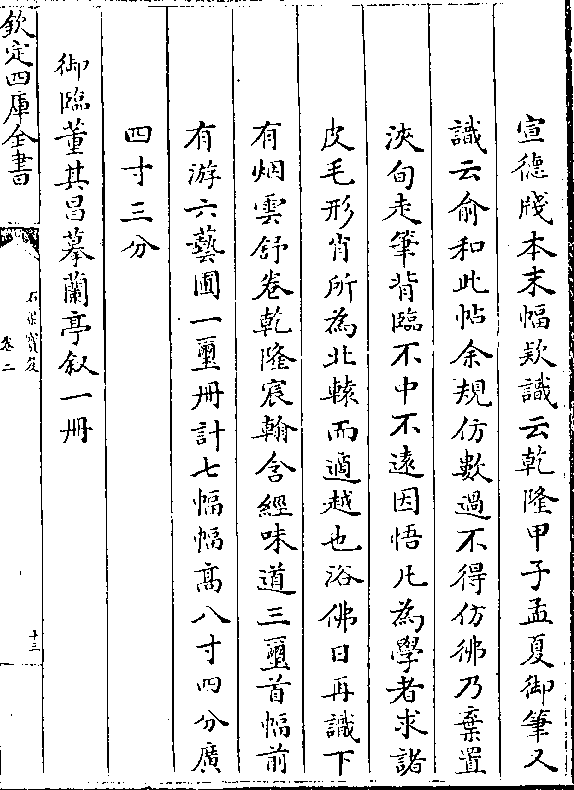 宣德牋本末幅欵識云乾隆甲子孟夏御筆又
識云俞和此帖余規仿數過不得仿彿乃棄置
浹旬走筆背臨不中不遠因悟凡為學者求諸
皮毛形肖所為北轅而適越也浴佛日再識下
有烟雲舒卷乾隆宸翰含經味道三璽首幅前
有游六藝圃一璽冊計七幅幅髙八寸四分廣
四寸三分
御臨董其昌摹蘭亭叙一冊
欽定四庫全書
石渠寳笈
卷二
十三